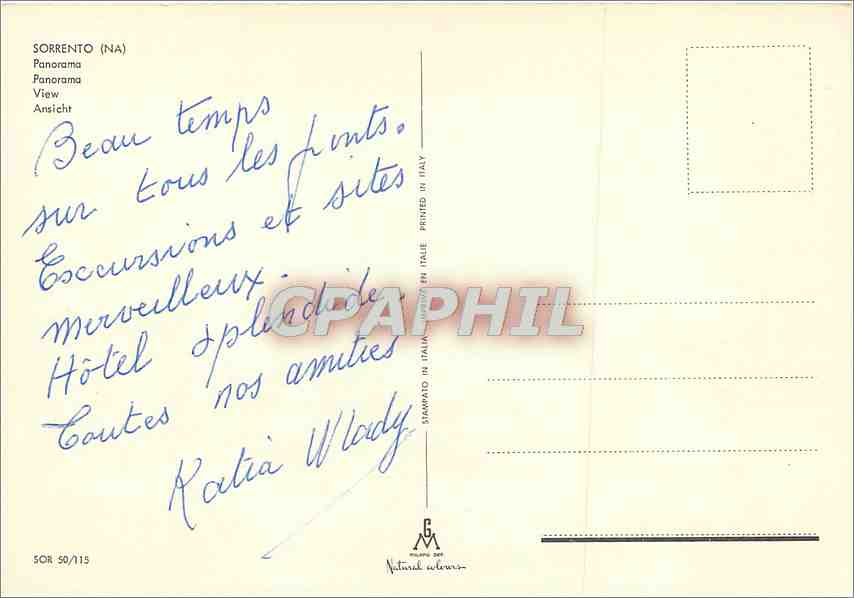 SORRENTO (NA)
Panorama
Panorama
View
Ansicht
Beau temps
sur tous les points.
Excursions et sites
merveilleux.
Hôtel splendide
Toutes nos amitiés
Katia Wlady
SOR 50/115
STAMPATO IN ITALIA IMPRIMÉ EN ITALIE PRINTED IN ITALY
CPAPHIL
GM
Natural colours